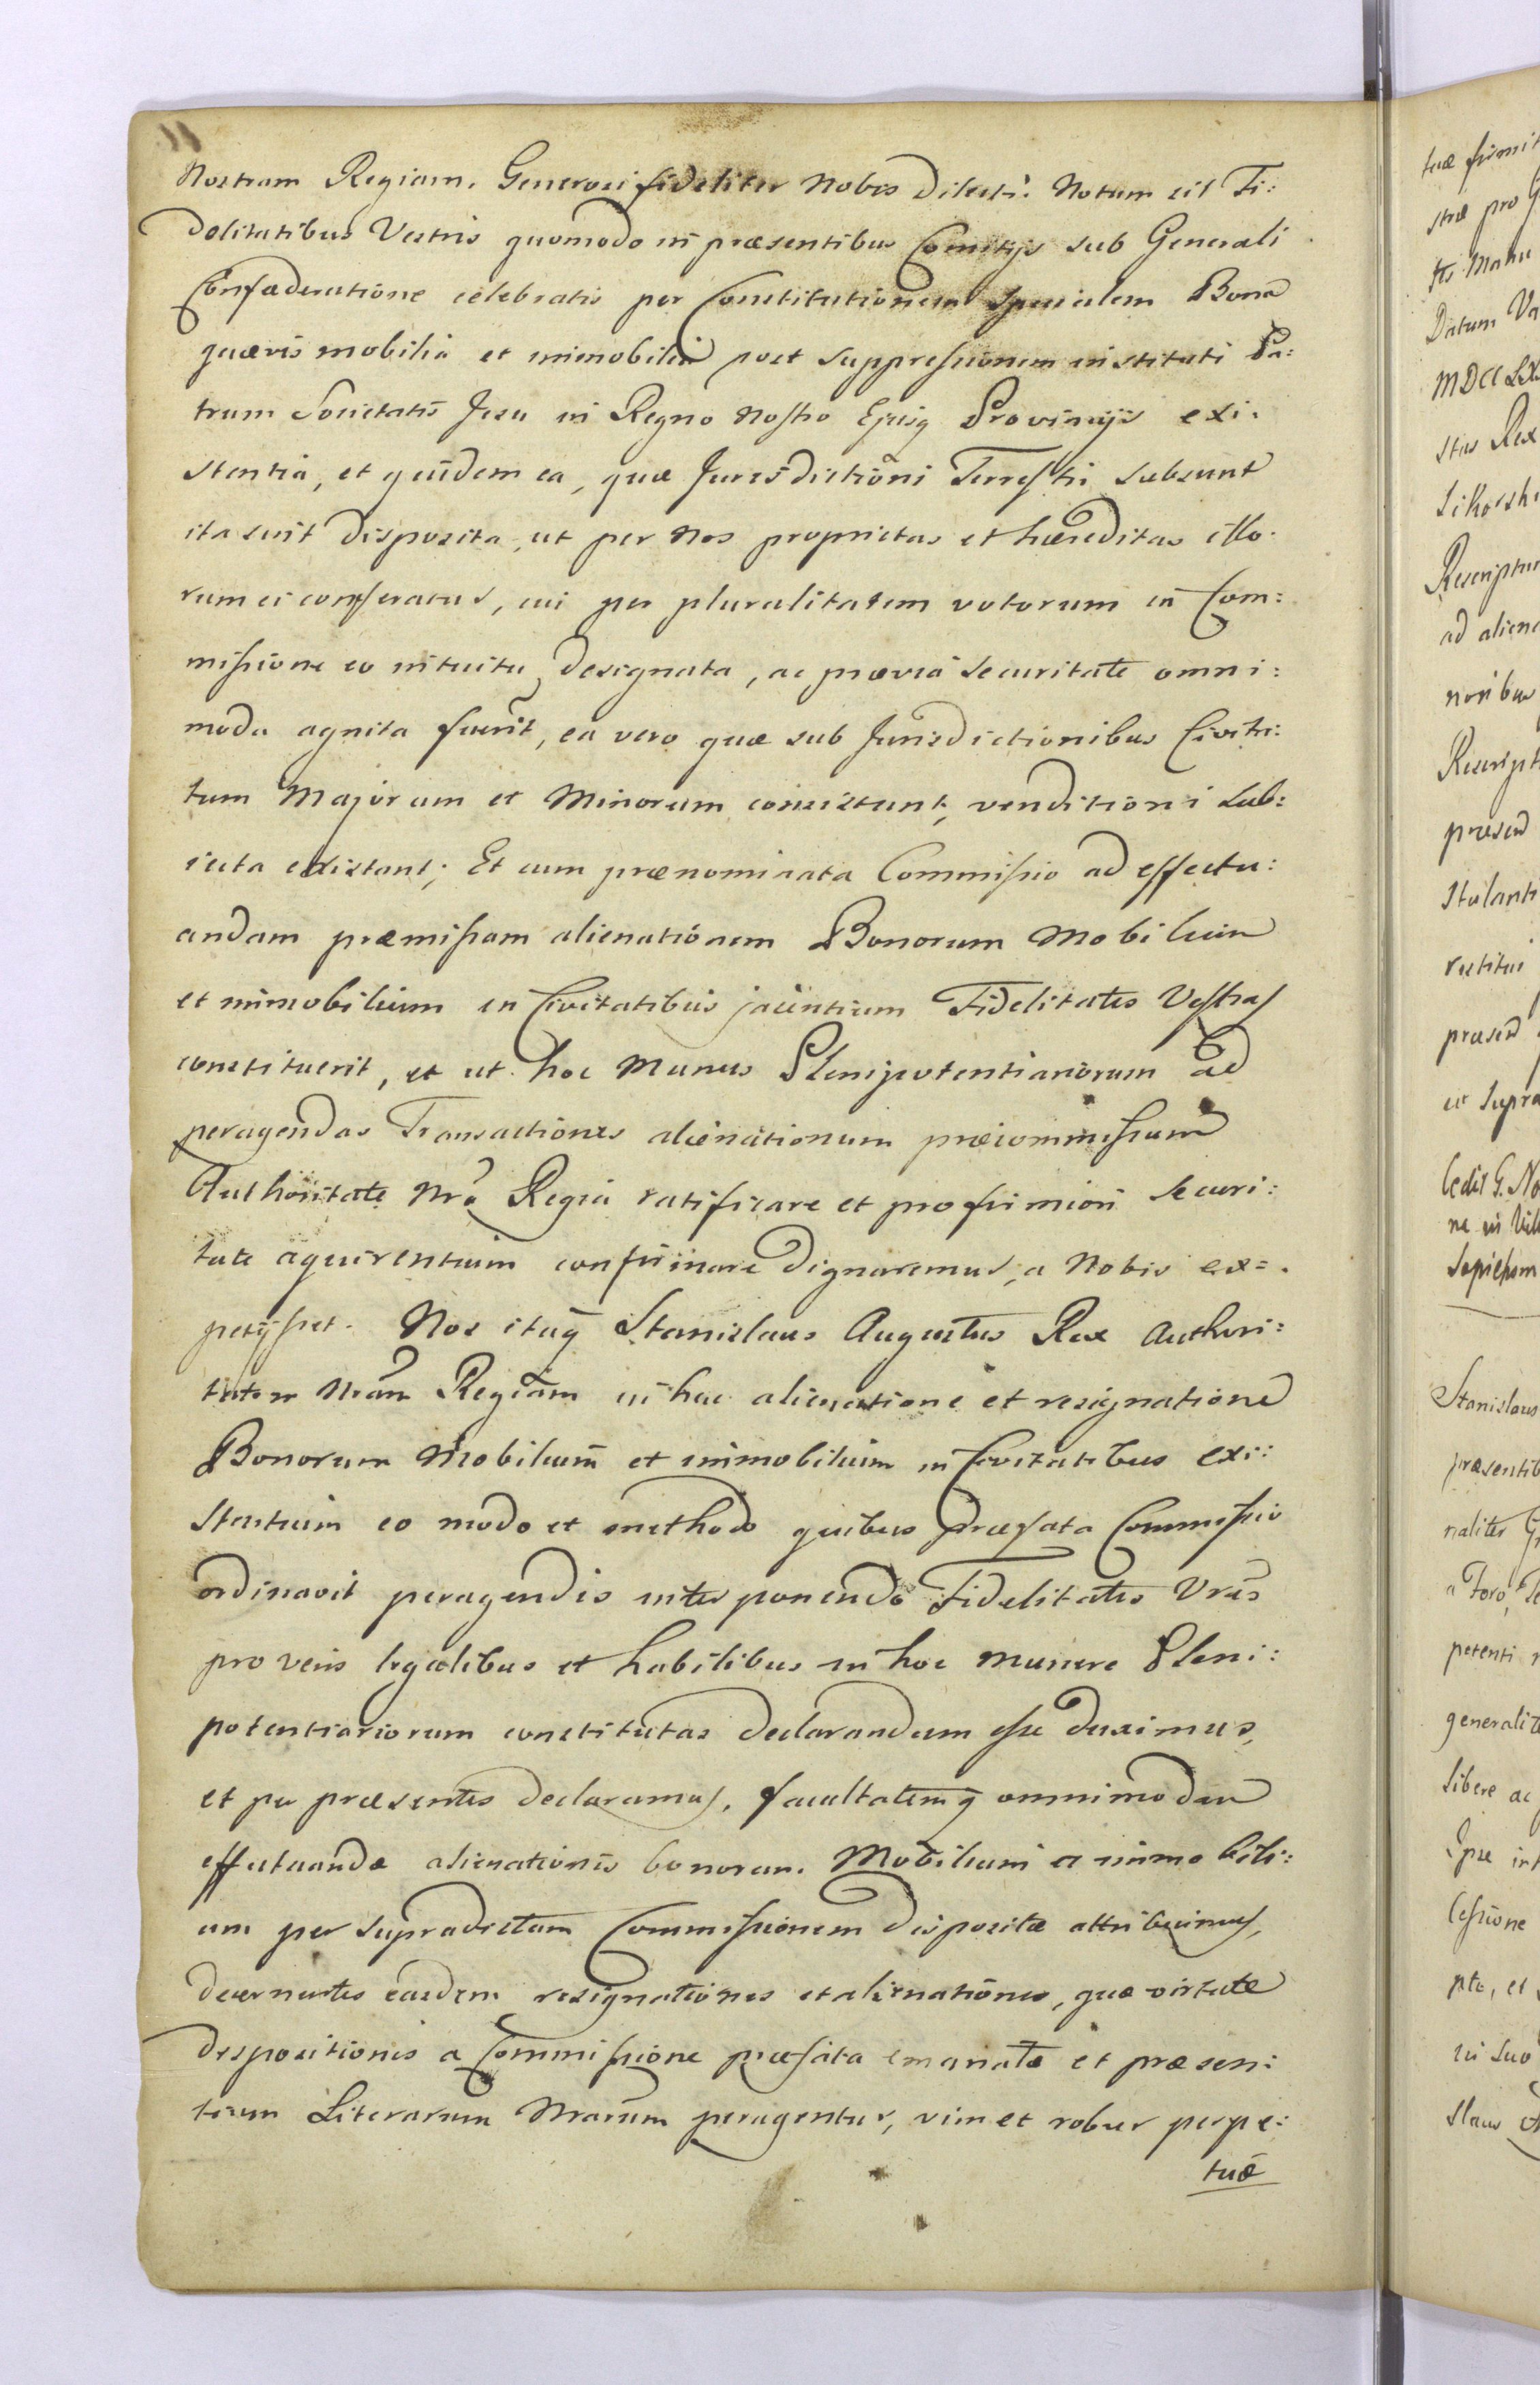 11
Nostram Regiam. Generosi fideliter Nobis Dilecti. Notum est Fi:
delitatibus Vestris quomodo in præsentibus Comitijs sub Generali
Confæderatione celebratis per Constitutionem specialem Bona
quævis mobilia et immobilia post suppressionem instituti Pa:
trum Societatis Jesu in Regno Nostro Ejusq Provincijs exi:
stentia, et quidem ea, quæ Jurisdictioni Terrestri subsunt
ita sint disposita, ut per Nos proprietas et hæreditas illo:
rum ei conferatur, cui per pluralitatem votorum in Com:
missione eo intuitu designata, ac prævia securitate omni:
moda agnita fuerit, ea vero quæ sub Jurisdictionibus Civita:
tum Majorum et Minorum consistunt, venditioni sub:
iecta existant; Et cum prænominata Commissio ad effectu:
andam præmissam alienationem Bonorum Mobilium
et immobilium in Civitatibus jacentium Fidelitates Vestras
constituerit, et ut hoc Munus Plenipotentiariorum ad
peragendas Transactiones alienationum præcommissum
Authoritate Nrã Regia ratificare et pro firmiori securi:
tate aquirentium confirmare dignaremur, a Nobis ex=
petijsset. Nos itaq Stanislaus Augustus Rex Authori:
tatem Nrãm Regiam in hac alienatione et resignatione
Bonorum Mobilium et immobilium in Civitatibus exi:
stentium eo modo et methodo quibus præfata Commissio
ordinavit peragendis interponendo Fidelitates Vras
pro veris legalibus et habilibus in hoc munere Pleni:
potentiariorum constitutas declarandum esse duximus,
et per præsentes declaramus, facultatemq omnimodam
effectuandæ alienationis bonorum Mobilium et immobili:
um per supradictam Commissionem dispositæ attribuimus,
decernentes easdem resignationes et alienationes, quæ virtute
dispositionis a Commissione præfata emanatæ et præsen:
tium Literarum Nrarum peragentur, vim et robur perpe:
tuæ
tuæ firmit
stræ pro G
tis Manu
Datum Va
MDCCLXX
stus Rex
Sikorski
Rescriptum
ad aliena
noribus
Rescript
præsen
stulanti
restitui
præsen
ut supra
Cedit G. No
ne in Vill
Sapieham
Stanislaus
præsentib
naliter G
a Foro, Te
petenti
generalite
libere ac
Ipse in
Cessione
pto, et
sui suo
slaus